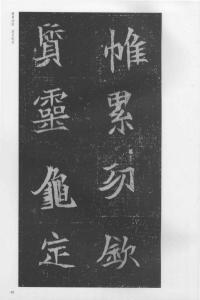 帷累刃欽
質靈龜定